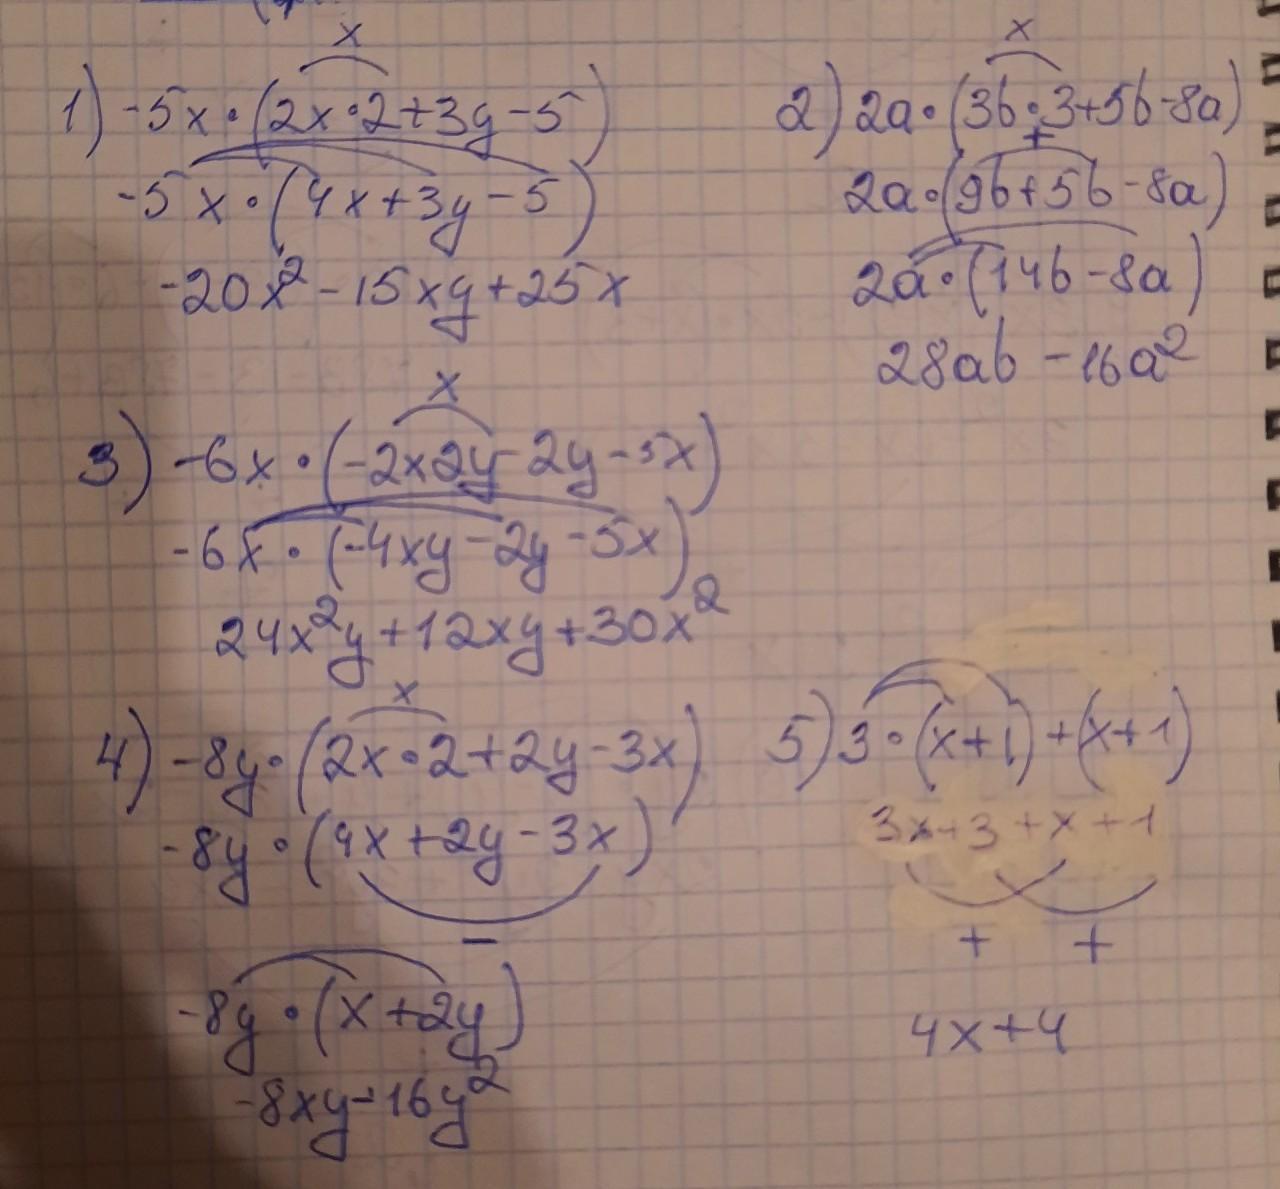 x
1) -5x·(2x·2+3y-5)
-5x·(4x+3y-5)
-20x²-15xy+25x
x
2) 2a·(3b·3+5b-8a)
+
2a·(9b+5b-8a)
2a·(14b-8a)
28ab-16a²
x
3) -6x·(-2x2y-2y-5x)
-6x·(-4xy-2y-5x)
24x²y+12xy+30x²
x
4) -8y·(2x·2+2y-3x)
-8y·(4x+2y-3x)
-
-8y·(x+2y)
-8xy-16y²
5) 3·(x+1)+(x+1)
3x+3+x+1
+ +
4x+4